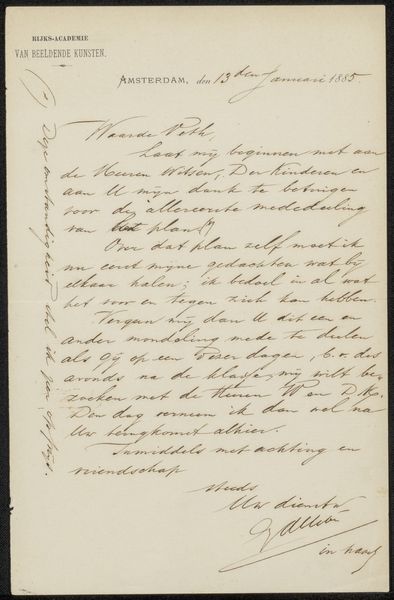 RIJKS-ACADEMIE
VAN BEELDENDE KUNSTEN.
AMSTERDAM, den 13den Januari 1885.
Waarde Veth,
Laat mij beginnen met aan
de Heeren Witsen, Der Kinderen en
aan U mijn dank te betuigen
voor de allereerste mededeeling
van plan (*)
Over dat plan zelf moet ik
nu eerst mijne gedachten wat bij
elkaar halen; ik bedoel in al wat
het voor en tegen zich kan hebben.
Vergun mij dan U dit een en
ander mondeling mede te deelen
als gij op een dezer dagen, b.v. des
avonds na de klasse, mij wilt be-
zoeken met de Heeren W en D.K.
Den dag verneem ik dan wel na
Uw terugkomst alhier.
Inmiddels met achting en
vriendschap
steeds
Uw dienstw
Allebé
in haast
(*) Deze omstandigheid stel ik zeer op prijs.